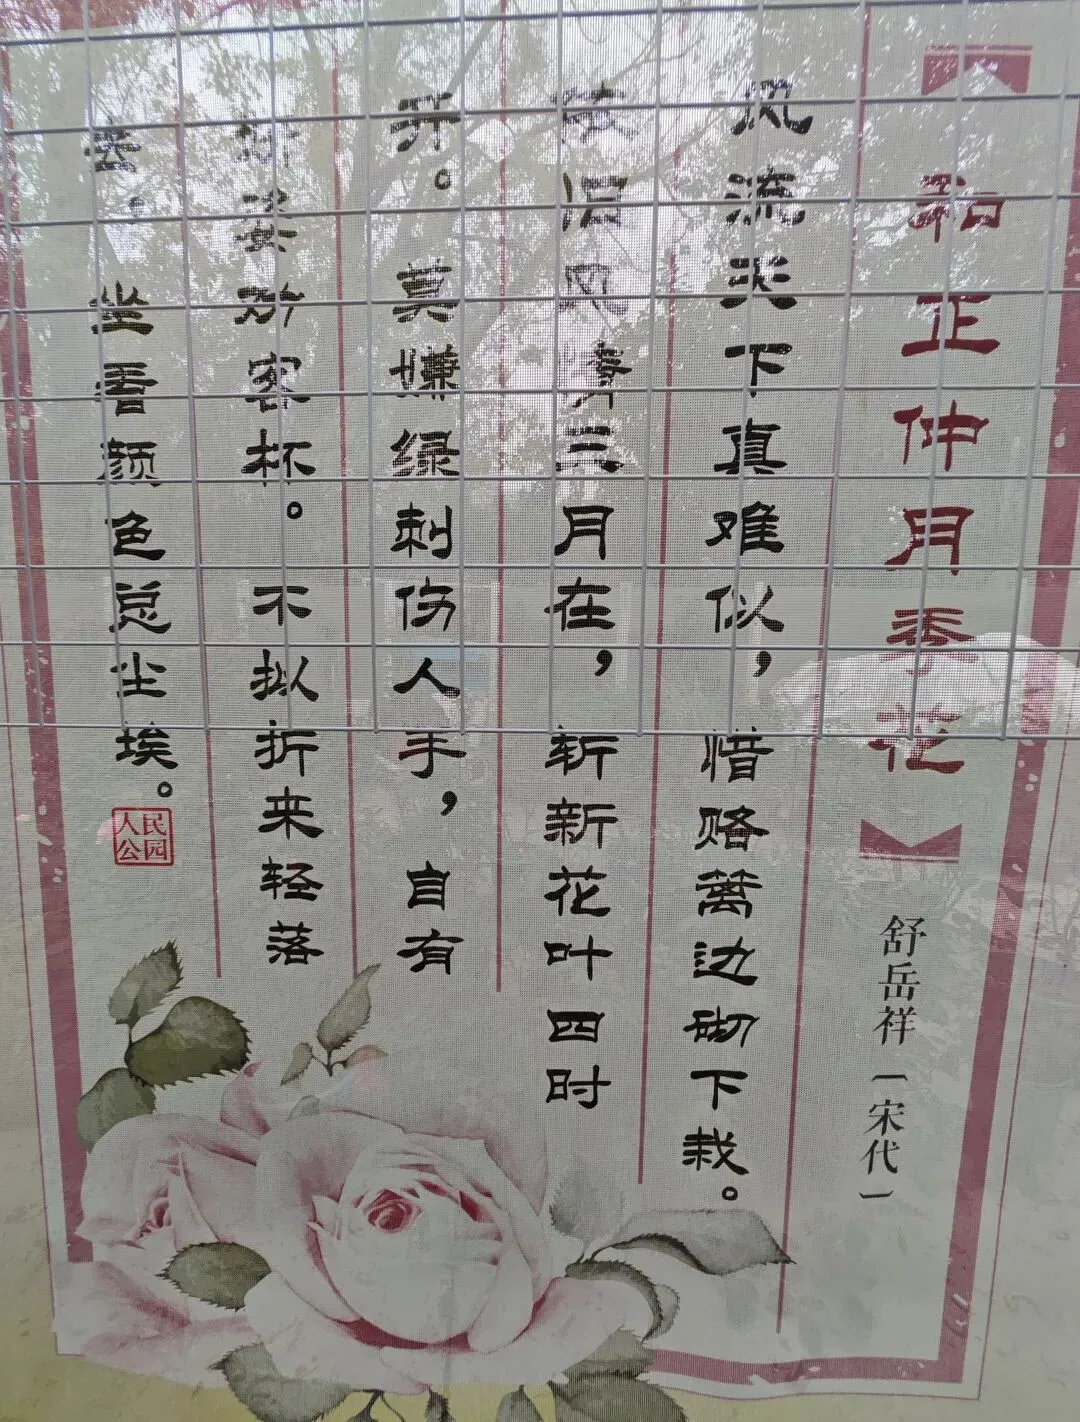 和正仲月季花
舒岳祥〔宋代〕
风流天下真难似，惜赂篱边砌下栽。
依旧风情三月在，斩新花叶四时
开。莫嫌绿刺伤人手，自有
姿劝客杯。不拟折来轻落
去，坐看颜色总尘埃。
人民
公园